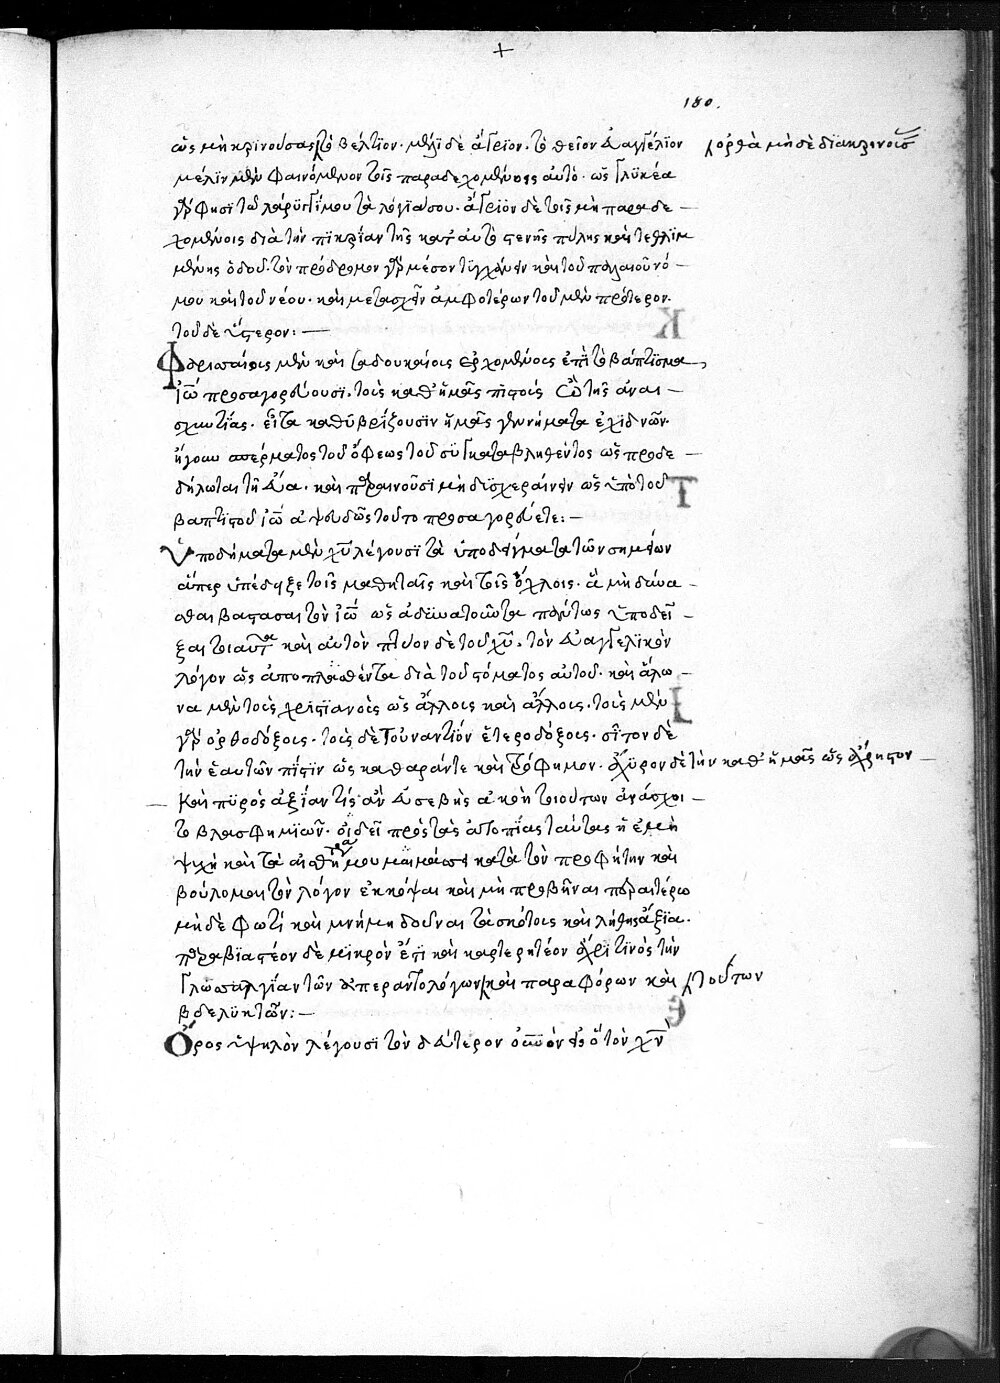 180.
ὡς μὴ κρίνούσας τὸ βέλτιον. μέλι δὲ ἄγριον. τὸ θεῖον εὐαγγέλιον
ὀρθὰ μὴ δὲ διακρινούσας
μέλι μὲν φαινόμενον τοῖς παραδεχομένοις αὐτό. ὡς γλυκέα
γάρ φησι τῷ λάρυγγί μου τὰ λόγιά σου. ἄγριον δὲ τοῖς μὴ παραδε –
χομένοις διὰ τὴν πικρίαν τῆς κατ' αὐτὸ στενῆς πύλης καὶ τεθλιμ
μένης ὁδοῦ. τὸν πρόδρομον γὰρ μέσον τυγχάνειν καὶ τοῦ παλαιοῦ νό –
μου καὶ τοῦ νέου. καὶ μετασχεῖν ἀμφοτέρων τοῦ μὲν πρότερον.
τοῦ δὲ ὕστερον: —
Φαρισαίοις μὲν καὶ σαδουκαίοις ἐρχομένοις ἐπὶ τὸ βάπτισμα,
ἰῶ προσαγορεύουσι. τοὺς καθ' ἡμᾶς πιστούς ὢ τῆς ἀναι –
σχυντίας. εἶτα καθυβρίζουσιν ἡμᾶς γεννήματα ἐχιδνῶν.
ἤγουν σπέρματος τοῦ ὄφεως τοῦ συγκαταβληθέντος ὡς προδε –
δήλωται τῇ εὔα. καὶ παραινοῦσι μὴ δυσχεραίνειν ὡς ὑπὸ τοῦ
βαπτιστοῦ ἰῶ ἀψευδῶς τοῦτο προσαγορεύεται: —
Ὑποδήματα μὲν χυ λέγουσι τὰ ὑποδείγματα τῶν σημείων
ἅπερ ὑπέδειξε τοῖς μαθηταῖς καὶ τοῖς ὄχλοις. ἃ μὴ δύνα –
σθαι βαστάσαι τὸν ἰῶ ὡς ἀδυνατοῦντα πάντως ὑποδεῖ –
ξαι τοιαῦτα καὶ αὐτὸν πτύον δὲ τοῦ χυ. τὸν εὐαγγελικὸν
λόγον ὡς ἀποπλασθέντα διὰ τοῦ στόματος αὐτοῦ. καὶ ἅλω –
να μὲν τοὺς χριστιανοὺς ὡς ἄλλοις καὶ ἄλλοις. τοὺς μὲν
γὰρ ὀρθοδόξοις. τοὺς δὲ τοὐναντίον ἑτεροδόξοις. σῖτον δὲ
τὴν ἑαυτῶν πίστιν ὡς καθαράν τε καὶ τρόφιμον. ἄχυρον δὲ τὴν καθ' ἡμᾶς ὡς ἄχρηστον –
– Καὶ πυρὸς ἀξίαν τίς ἂν εὐσεβὴς ἀκοὴ τοιούτων ἀνάσχοι –
το βλασφημιῶν. οἰδεῖ πρὸς τὰς ἀτοπίας ταύτας ἡ ἐμὴ
ψυχὴ καὶ τὰ αἰσθητήριά μου μαιμάσσει κατὰ τὸν προφήτην καὶ
βούλομαι τὸν λόγον ἐκκόψαι καὶ μὴ προβῆναι παραιτέρω
μηδὲ φωτὶ καὶ μνήμη δοῦναι τὰ σκότους καὶ λήθης ἄξια.
παραβιαστέον δὲ μικρὸν ἔτι καὶ καρτερητέον ἄχρι τινὸς τὴν
γλωσσαλγίαν τῶν ἀπεραντολόγων καὶ παραφόρων καὶ τούτων
βδελυκτῶν: —
Ὄρος ὑψηλὸν λέγουσι τὸν δεύτερον οὐνόν ἐν ᾧ τὸν χν